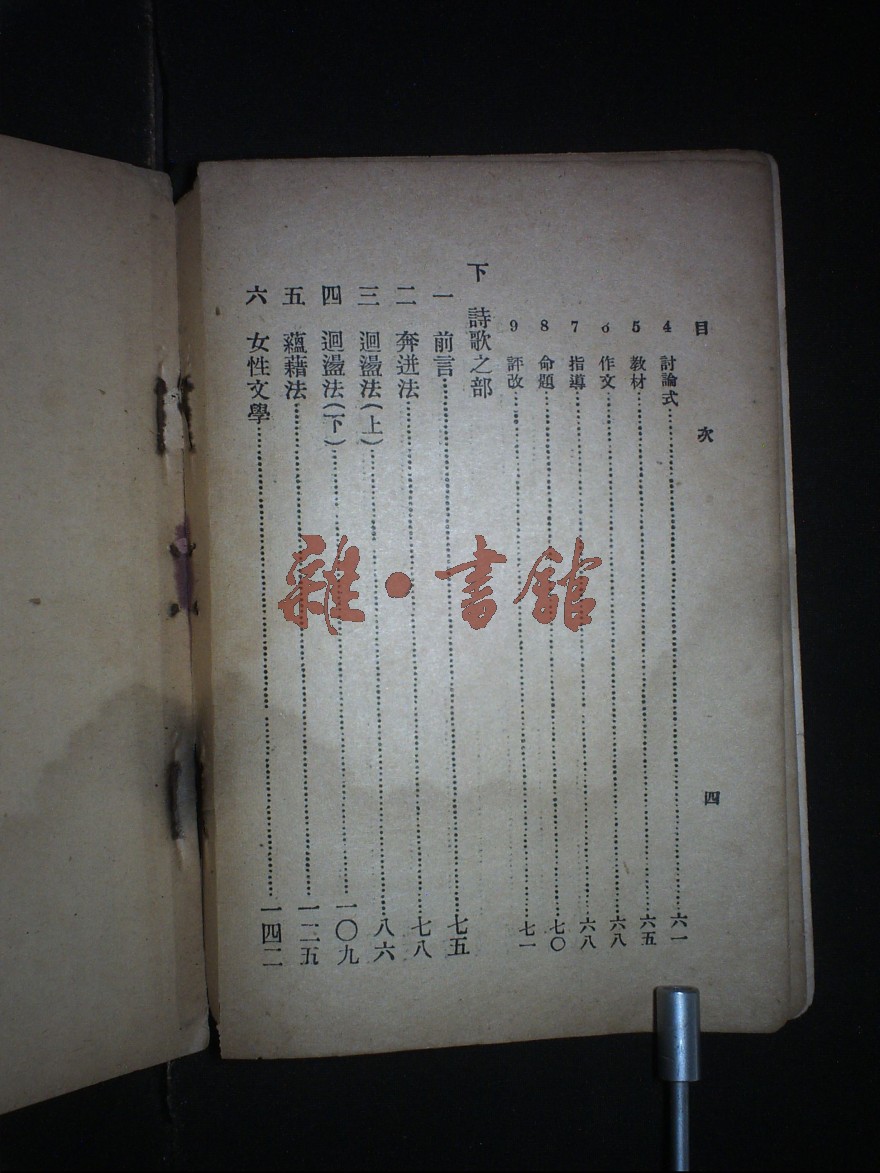 目次 四
4 討論式 六一
5 教材 六五
6 作文 六八
7 指導 六八
8 命題 七〇
9 評改 七一
下 詩歌之部
一 前言 七五
二 奔迸法 七八
三 迴盪法(上) 八六
四 迴盪法(下) 一〇九
五 蘊藉法 一二五
六 女性文學 一四二
雜·書館